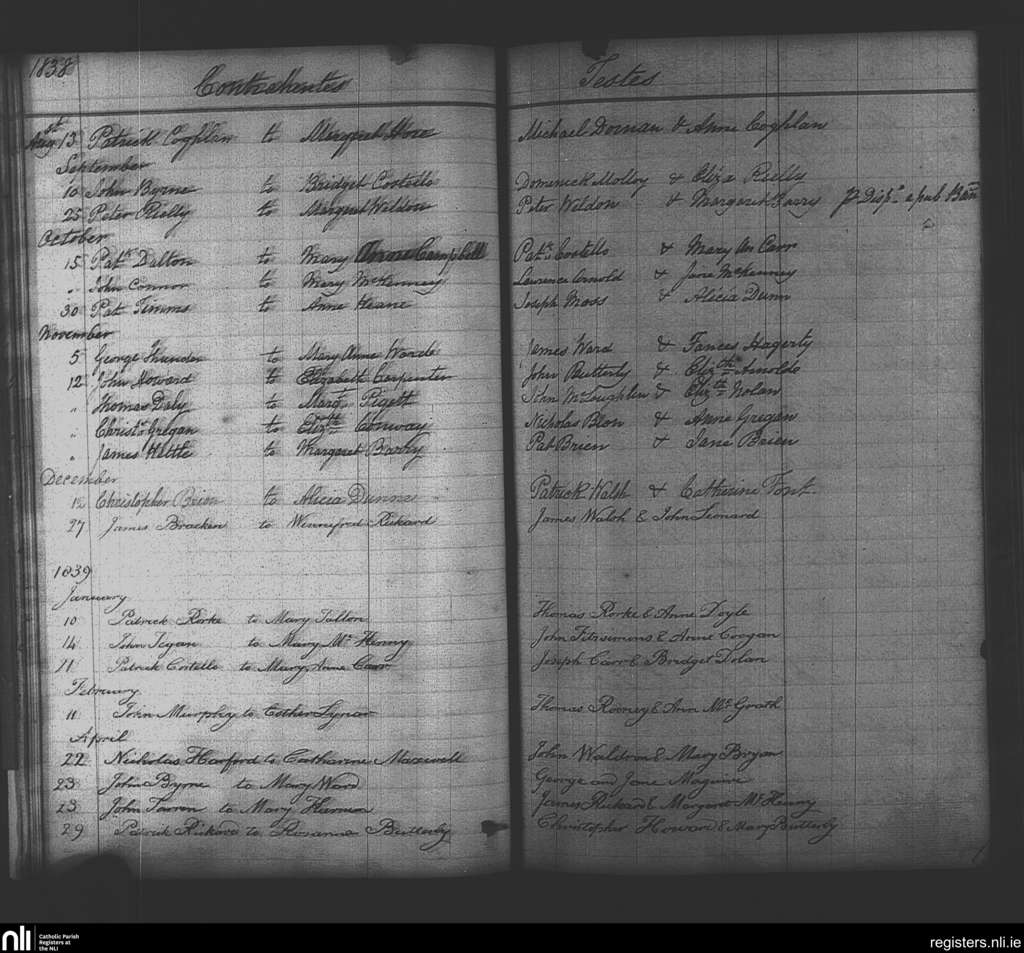 1838
Contrahentes Testes
Augst 13 Patrick Coghlan to Margret Hoee Michael Dornan & Anne Coghlan
September
10 John Byrne to Bridget Costello Domenick Molloy & Eliza Rielly
25 Peter Rielly to Margret Weldon Peter Weldon & Margaret Barry Disp.n a pub. Ban
October
15 Patk Dalton to Mary Anne Campbell Patk Costello & Mary An Carr
" John Connor to Mary McKenney Lawrence Arnold & Jane McKenney
30 Pat Timms to Anne Heane Joseph Mass & Alicia Dunn
November
5 George Thunder to Mary Anne Warde James Ward & Fances Hagerty
12 John Howard to Elizabeth Carpenter John Butterly & Elizth Arnolde
" Thomas Daly to Margt Pigett John McLoughlin & Elizth Nolan
" Christr Gregan to Elizth Conway Nicholas Blon & Anne Gregan
" James Hettle to Margaret Barry Pat Brien & Jane Brien
December
12 Christopher Brien to Alicia Dunne Patrick Walsh & Catherine Font
27 James Bracken to Winnefred Rickard James Walsh & John Leonard
1839
January
10 Patrick Rorke to Mary Talbon Thomas Rorke & Anne Doyle
14 John Tegan to Mary Mc Henry John Fitzsimons & Anne Coogan
21 Patrick Costello to Mary Anne Carr Joseph Carr & Bridget Dolan
February
11 John Murphy to Esther Lynar Thomas Rooney & Ann McGrath
April
22 Nicholas Harford to Catharine Maxwell John Waldron & Mary Bryan
23 John Byrne to Mary Ward George and Jane Maguire
23 John Farren to Mary Hernon James Rickard & Margaret McHenry
29 Patrick Rickard to Rosanna Butterly Christopher Howard & Mary Butterly
nli Catholic Parish
Registers at
the NLI
registers.nli.ie